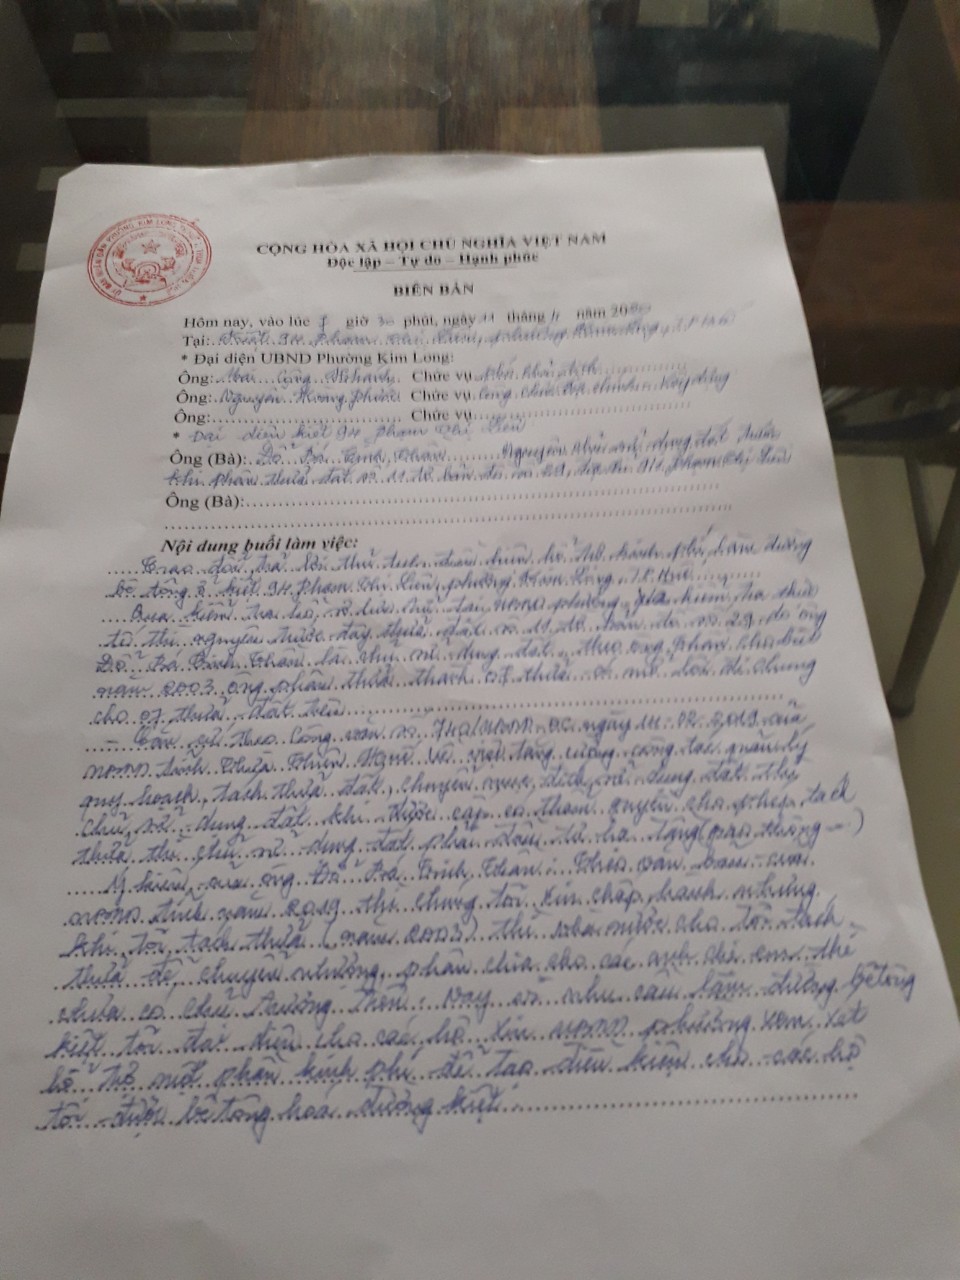 CỘNG HÒA XÃ HỘI CHỦ NGHĨA VIỆT NAM
Độc lập – Tự do – Hạnh phúc
BIÊN BẢN
Hôm nay, vào lúc giờ 30 phút, ngày 11 tháng 11 năm 20
Tại: Kiệt 94 Phạm Thị Liên, phường Kim Long, TP Huế
* Đại diện UBND Phường Kim Long:
Ông: Mai Công Chức vụ Phó Chủ tịch
Ông: Nguyễn Hoàng Chức vụ Công chức Địa chính - Xây dựng
Ông: Chức vụ
* Đại diện kiệt 94 Phạm Thị Liên
Ông (Bà): Đỗ Bá Nguyên chủ sử dụng đất trước
khi phân thửa đất số 11 tờ bản đồ số 29, tại 94 Phạm Thị Liên
Ông (Bà):
Nội dung buổi làm việc:
Trao đổi, trả lời hỗ trợ kinh phí làm đường
bê tông ở kiệt 94 Phạm Thị Liên, phường Kim Long, TP Huế
Qua kiểm tra hồ sơ lưu trữ tại UBND phường, qua kiểm tra thực
tế thì nguyên trước đây thửa đất số 11 tờ bản đồ số 29 do ông
Đỗ Bá là chủ sử dụng đất, theo ông cho biết
năm 2003 ông phân thửa thành 07 thửa có mở lối đi chung
cho 07 thửa đất trên
- Căn cứ theo Công văn số ngày 2019 của
UBND tỉnh Thừa Thiên Huế về việc tăng cường công tác quản lý
quy hoạch, tách thửa đất, chuyển mục đích sử dụng đất thì
chủ sử dụng đất khi được cấp có thẩm quyền cho phép tách
thửa thì chủ sử dụng đất phải đầu tư hạ tầng (giao thông ...)
Ý kiến của ông Đỗ Bá : Theo văn bản của
UBND tỉnh năm 2019 thì chúng tôi xin chấp hành nhưng
khi tôi tách thửa (năm 2003) thì nhà nước cho tôi tách
thửa để chuyển nhượng, phân chia cho các anh chị em thì
chưa có chủ trương trên. Nay có nhu cầu làm đường bê tông
kiệt tôi đại diện cho các hộ xin UBND phường xem xét
hỗ trợ một phần kinh phí để tạo điều kiện cho các hộ
tôi được bê tông hoá đường kiệt.